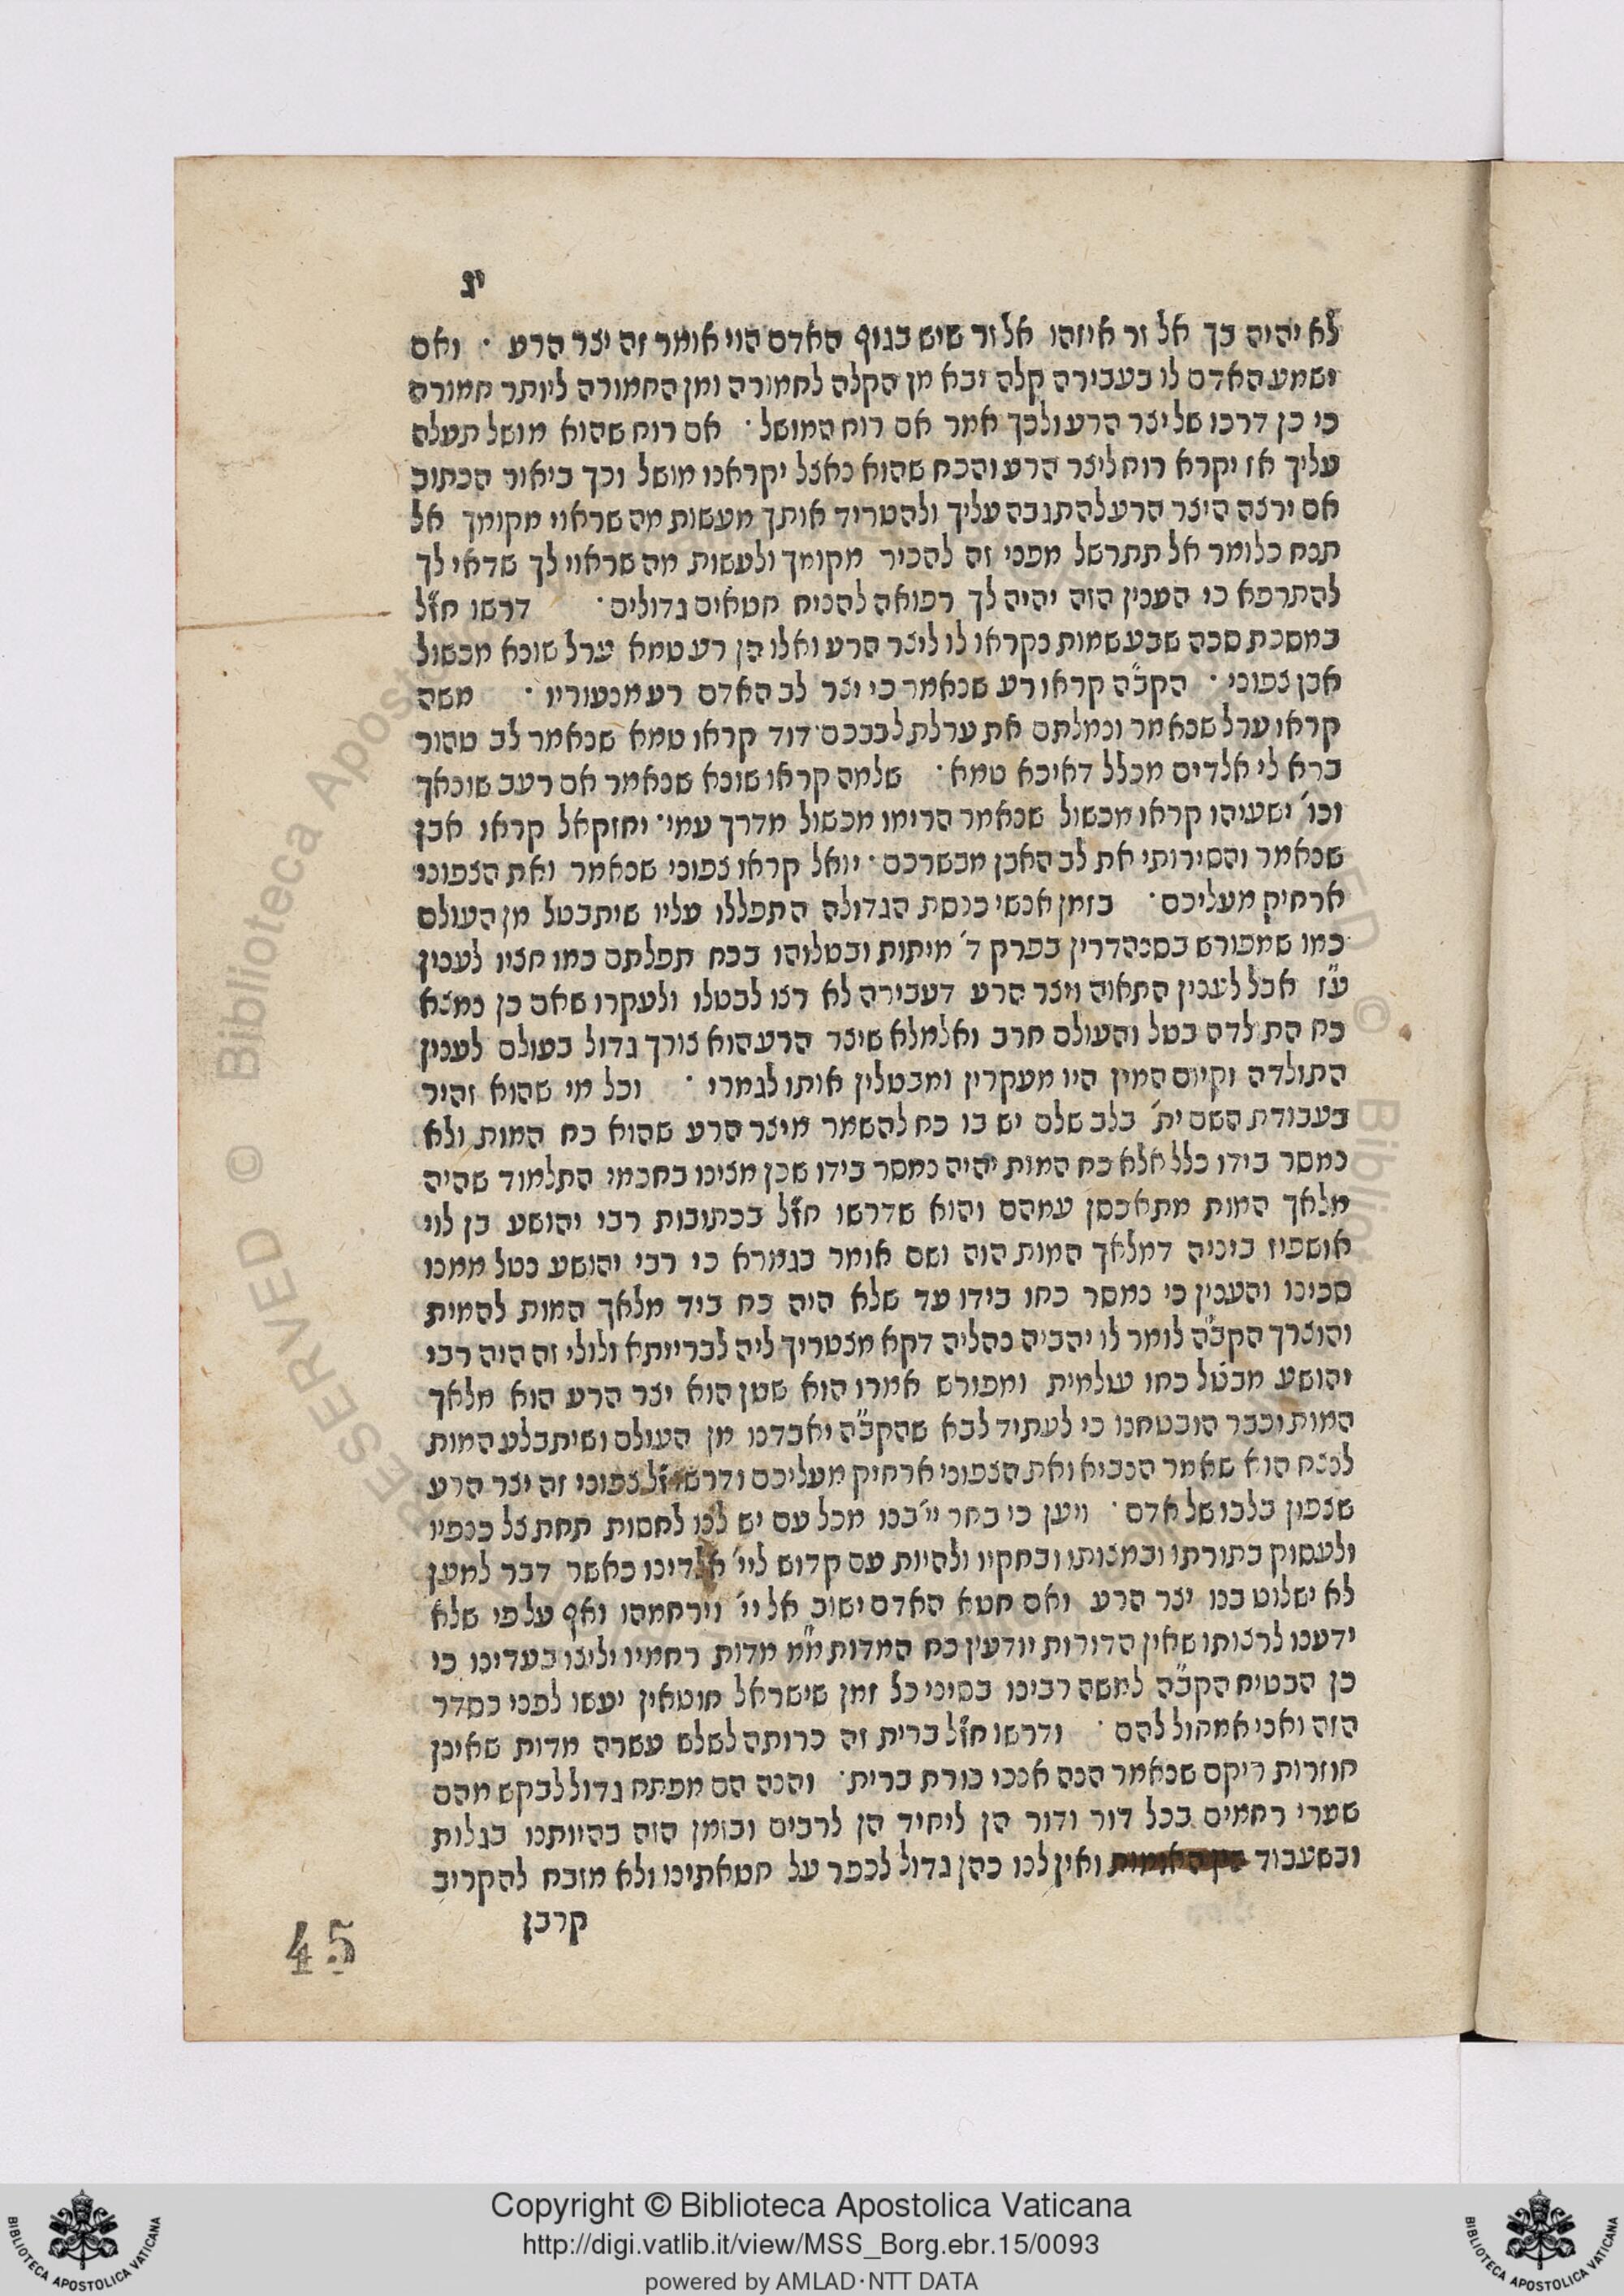 יג
לא יהיה בך אל זר איזהו אל זר שיש בגוף האדם הוי אומר זה יצר הרע · ואם
ישמע האדם לו בעבירה קלה יבא מן הקלה לחמורה ומן החמורה ליותר חמורה
כי כן דרכו של יצר הרע ולכך אמר אם רוח המושל · אם רוח שהוא מושל תעלה
עליך אז יקרא רוח ליצר הרע והכח שהוא נאצל יקראנו מושל וכך ביאור הכתוב
אם ירצה היצר הרע להתגבה עליך ולהטריד אותך מעשות מה שראוי מקומך אל
תנח כלומר אל תתרשל מפני זה להכיר מקומך ולעשות מה שראוי לך שדאי לך
להתרפא כי הענין הזה יהיה לך רפואה להניח חטאים גדולים · דרשו חז״ל
במסכת סכה שבע שמות נקראו לו ליצר הרע ואלו הן רע טמא ערל שונא מכשול
אבן צפוני · הקב״ה קראו רע שנאמר כי יצר לב האדם רע מנעוריו · משה
קראו ערל שנאמר ומלתם את ערלת לבבכם · דוד קראו טמא שנאמר לב טהור
ברא לי אלדים מכלל דאיכא טמא · שלמה קראו שונא שנאמר אם רעב שונאך
וכו׳ ישעיהו קראו מכשול שנאמר הרימו מכשול מדרך עמי · יחזקאל קראו אבן
שנאמר והסירותי את לב האבן מבשרכם · יואל קראו צפוני שנאמר ואת הצפוני
ארחיק מעליכם · בזמן אנשי כנסת הגדולה התפללו עליו שיתבטל מן העולם
כמו שמפורש בסנהדרין בפרק ד׳ מיתות ובטלוהו בכח תפלתם כמו חציו לענין
ע״ז אבל לענין התאוה ויצר הרע דעבירה לא רצו לבטלו ולעקרו שאם כן נמצא
כח התולדה בטל והעולם חרב ואלמלא שיצר הרע הוא צורך גדול בעולם לענין
התולדה וקיום המין היו מעקרין ומבטלין אותו לגמרי · וכל מי שהוא זהיר
בעבודת השם ית׳ בלב שלם יש בו כח להשמר מיצר הרע שהוא כח המות ולא
נמסר בידו כלל אלא כח המות יהיה נמסר בידו שכן מצינו בחכמי התלמוד שהיה
מלאך המות מתאכסן עמהם והוא שדרשו חז״ל בכתובות רבי יהושע בן לוי
אושפיז ביניה דמלאך המות הוה ושם אומר בגמרא כי רבי יהושע נטל ממנו
סכינו והענין כי נמסר כחו בידו עד שלא היה כח ביד מלאך המות להמית
והוצרך הקב״ה לומר לו יהביה ניהליה דקא מצטריך ליה לברייתא ולולי זה היה רבי
יהושע מבטל כחו עולמית ומפורש אמרו הוא שטן הוא יצר הרע הוא מלאך
המות וכבר הובטחנו כי לעתיד לבא שהקב״ה יאבדנו מן העולם ושיתבלע המות
לנצח הוא שאמר הנביא ואת הצפוני ארחיק מעליכם ודרשו ז״ל צפוני זה יצר הרע
שצפון בלבו של אדם · ויען כי בחר יי׳ בנו מכל עם יש לנו לחסות תחת צל כנפיו
ולעסוק בתורתו ובמצותו ובחקיו ולהיות עם קדוש ליי׳ אלדינו כאשר דבר למען
לא ישלוט בנו יצר הרע ואם חטא האדם ישוב אל יי׳ וירחמהו ואף על פי שלא
ידענו לרצותו שאין הדורות יודעין כח המדות מ״מ מדות רחמיו יליצו בעדינו כי
כן הבטיח הקב״ה למשה רבינו בסיני כל זמן שישראל חוטאין יעשו לפני כסדר
הזה ואני אמחול להם · ודרשו חז״ל ברית זה כרותה לשלש עשרה מדות שאינן
חוזרות ריקם שנאמר הנה אנכי כורת ברית · והנה הם מפתח גדול לבקש מהם
שערי רחמים בכל דור ודור הן ליחיד הן לרבים ובזמן הזה בהיותנו בגלות
ובשעבוד ואין לנו כהן גדול לכפר על חטאתינו ולא מזבח להקריב
קרבן
45
Copyright © Biblioteca Apostolica Vaticana
http://digi.vatlib.it/view/MSS_Borg.ebr.15/0093
powered by AMLAD·NTT DATA